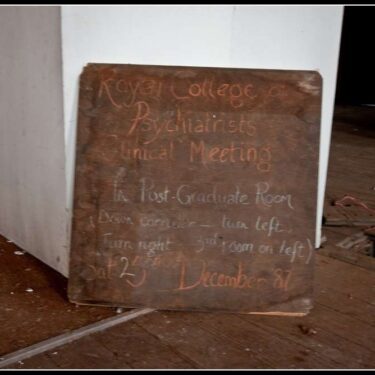 Royal College of
Psychiatrists
Clinical Meeting
In Post-Graduate Room
(Down corridor – turn left,
Turn right 3rd room on left)
Sat December 87